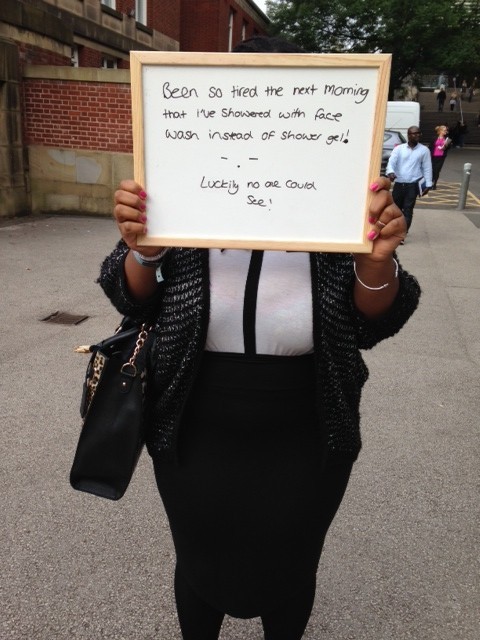 Been so tired the next morning
that I've showered with face
wash instead of shower gel!
- . -
Luckily no one could
see!